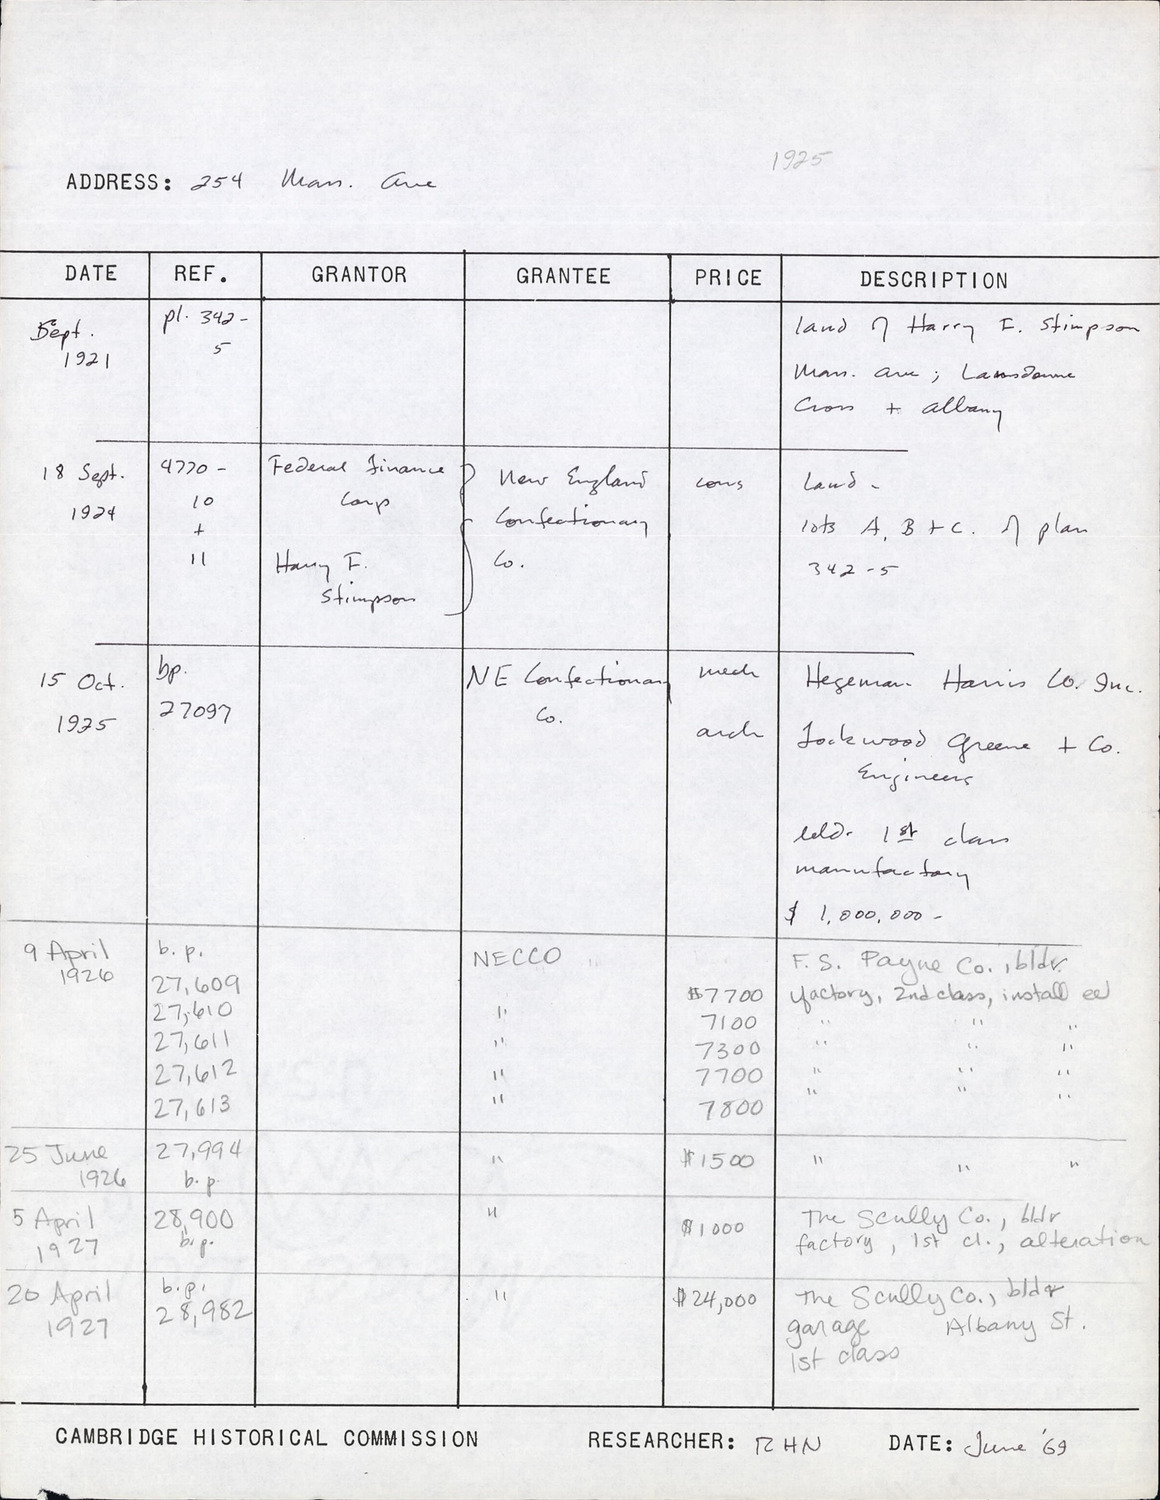 1925
ADDRESS: 254 Mass. Ave
DATE REF. GRANTOR GRANTEE PRICE DESCRIPTION
Sept. 1921
pl. 342-
5
land of Harry F. Stimpson
Mass. Ave ; Lansdowne
Cross + Albany
18 Sept.
1924
4770 -
10
+
11
Federal Finance
Corp
Harry F.
Stimpson
New England
Confectionary
Co.
cons
Land -
lots A, B + C. of plan
342-5
15 Oct.
1925
bp.
27097
NE Confectionary
Co.
mech
arch
Hegeman Harris Co. Inc.
Lockwood Greene + Co.
Engineers
bldr. 1st class
manufactory
$ 1,000,000 -
9 April
1926
b.p.
NECCO "
F.S. Payne Co., bldr.
27,609 $7700 factory, 2nd class, install el
27,610 " 7100 " " "
27,611 " 7300 " " "
27,612 " 7700 " " "
27,613 " 7800 " " "
25 June
1926
27,994
b.p.
" $1500 " " "
5 April
1927
28,900
b.p.
" $1000
The Scully Co., bldr
factory, 1st cl., alteration
20 April
1927
b.p.
28,982
" $24,000
The Scully Co., bldr
garage Albany St.
1st class
CAMBRIDGE HISTORICAL COMMISSION RESEARCHER: RHN DATE: June '69